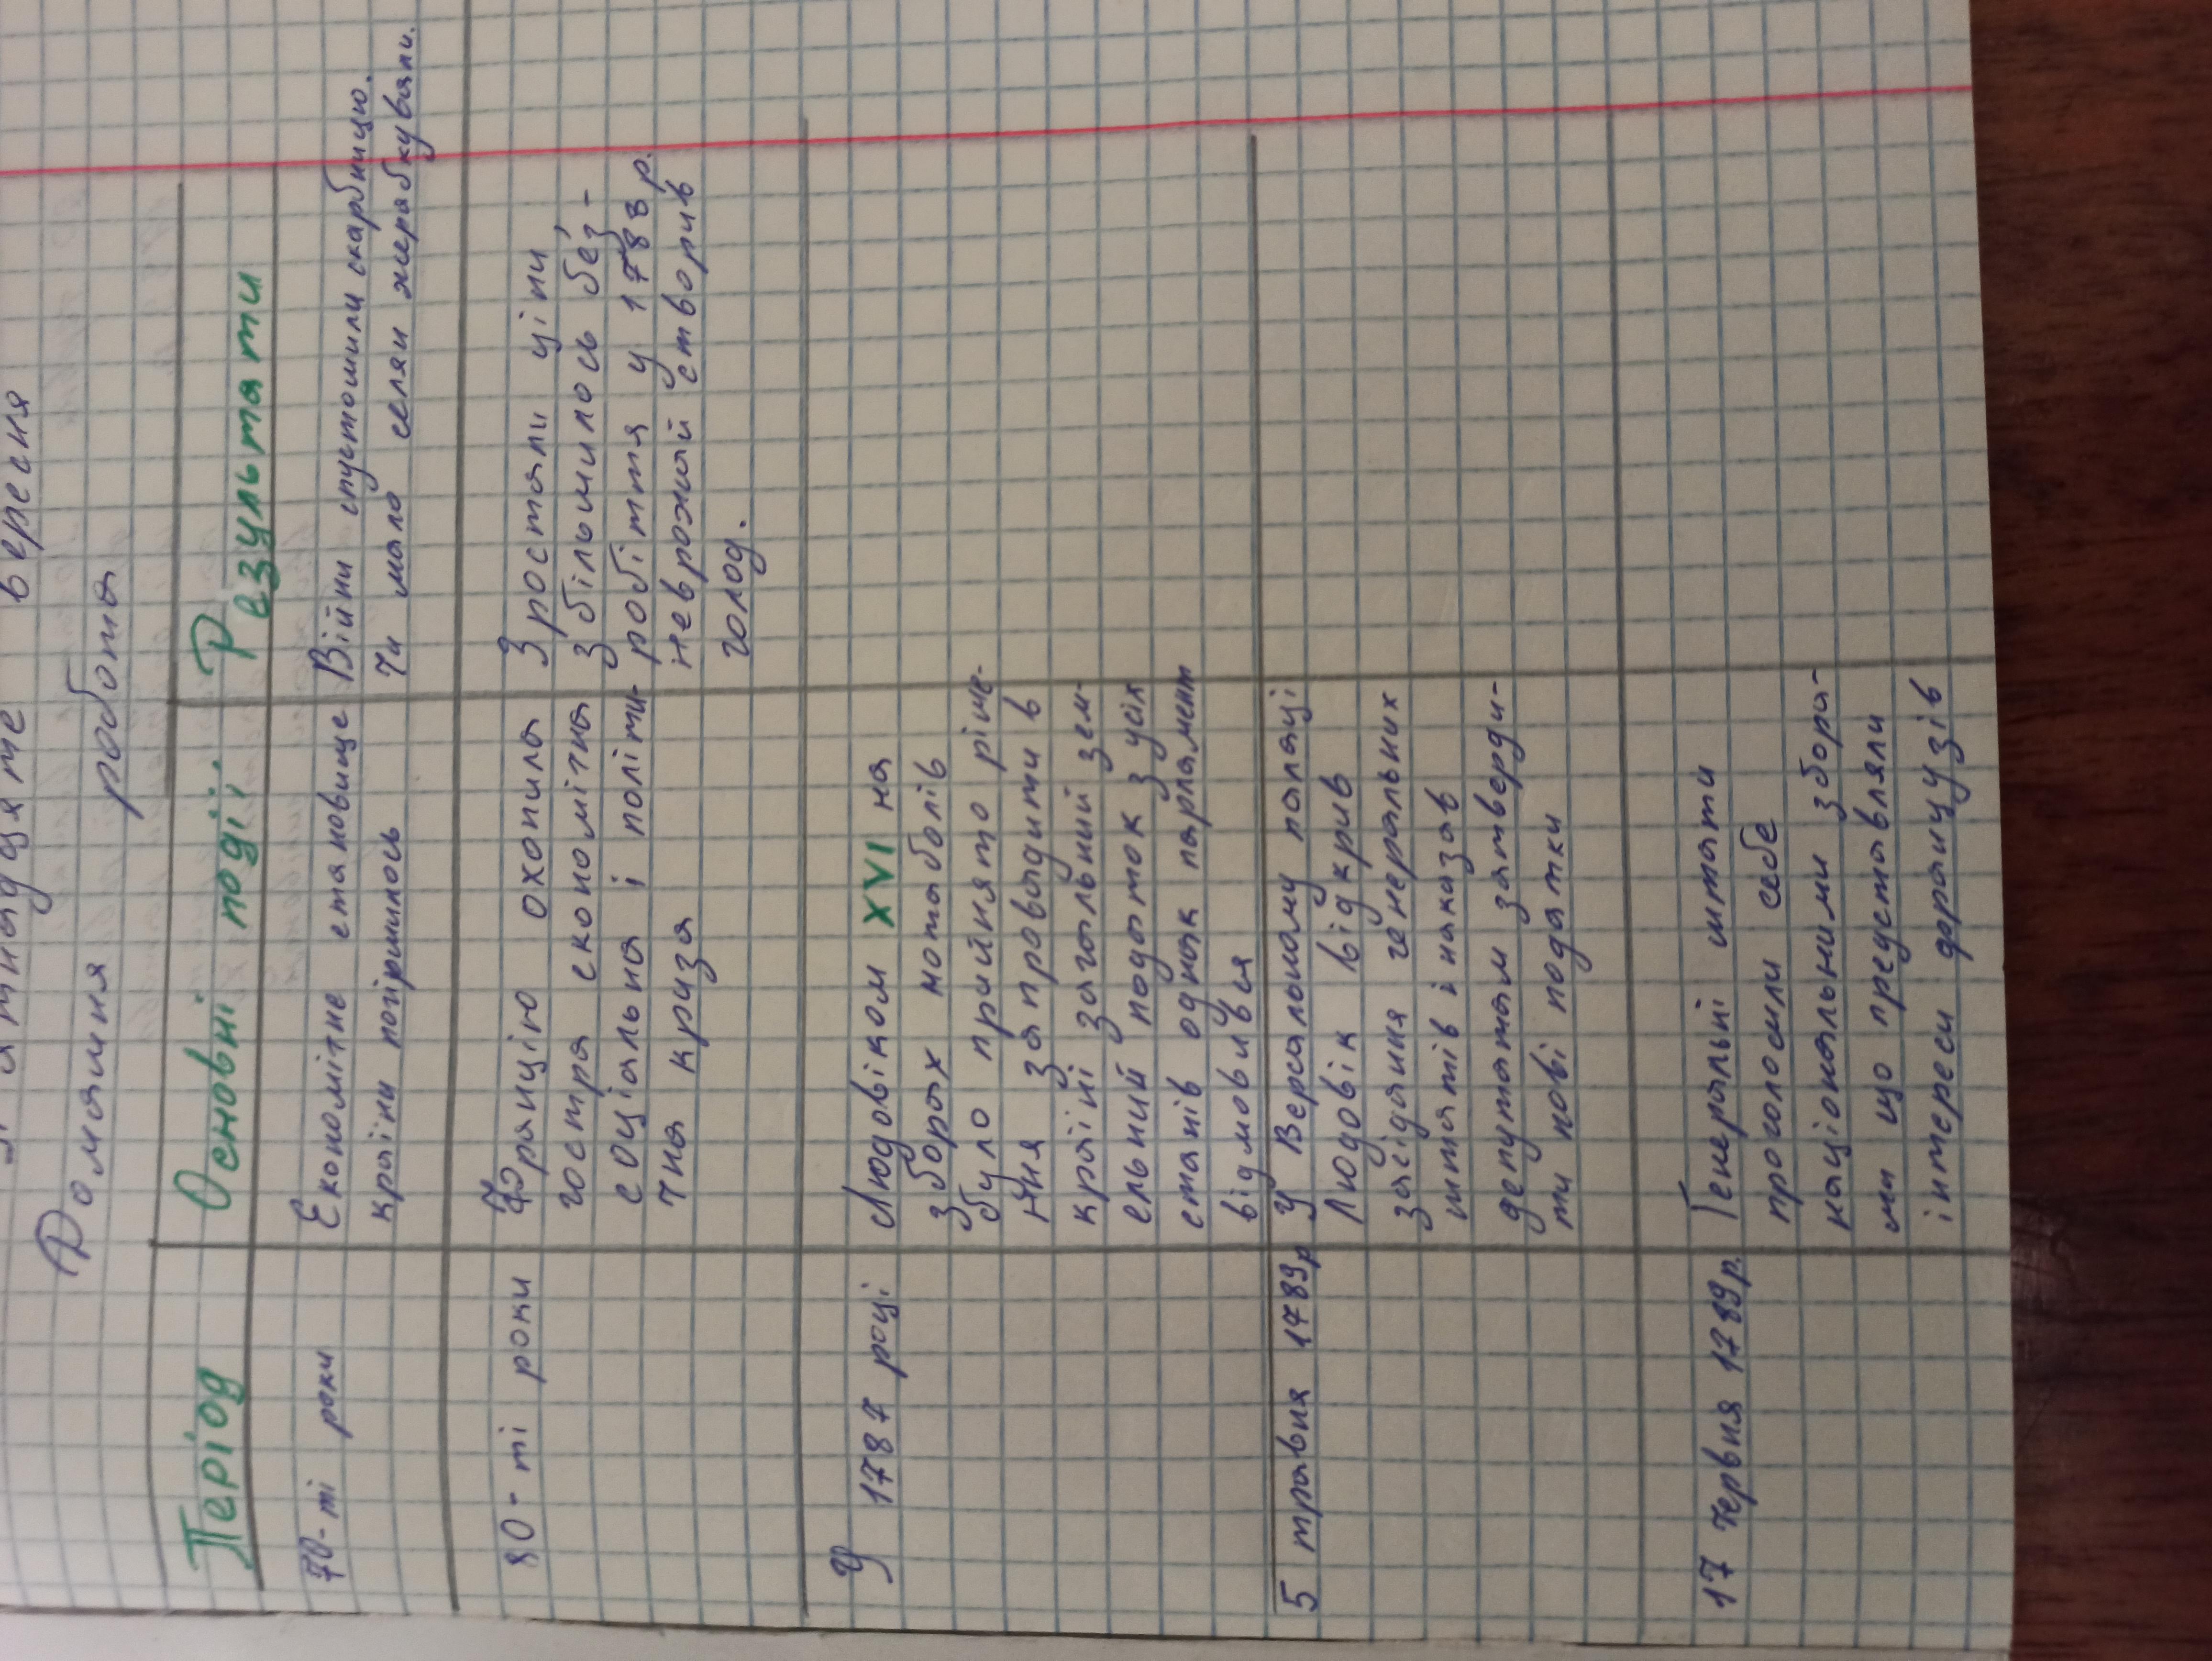 вересня
Домашня робота
Період Основні події Результати
70-ті роки
Економітне становище
країни погіршилось
Війни спустошили скарбницю.
Чи мало селян жебракували.
80-ті роки
Францію охопила
гостра економітна
соціальна і політи-
чна криза
Зростали ціни
збільшилось без-
робіття у 1788 р.
неврожай створив
голод.
У 1787 році
Людовіком XVI на
зборах нотаболів
було прийнято ріше-
ння запровадити в
країні загальний зем-
ельний податок з усіх
станів однак парламент
відмовився
5 травня 1789р
У Версальському палаці
Людовік відкрив
засідання генеральних
штатів і наказав
депутатам затверди-
ти нові податки
17 червня 1789р.
Генеральні штати
проголосили себе
національними збора-
ми що представляли
інтереси французів